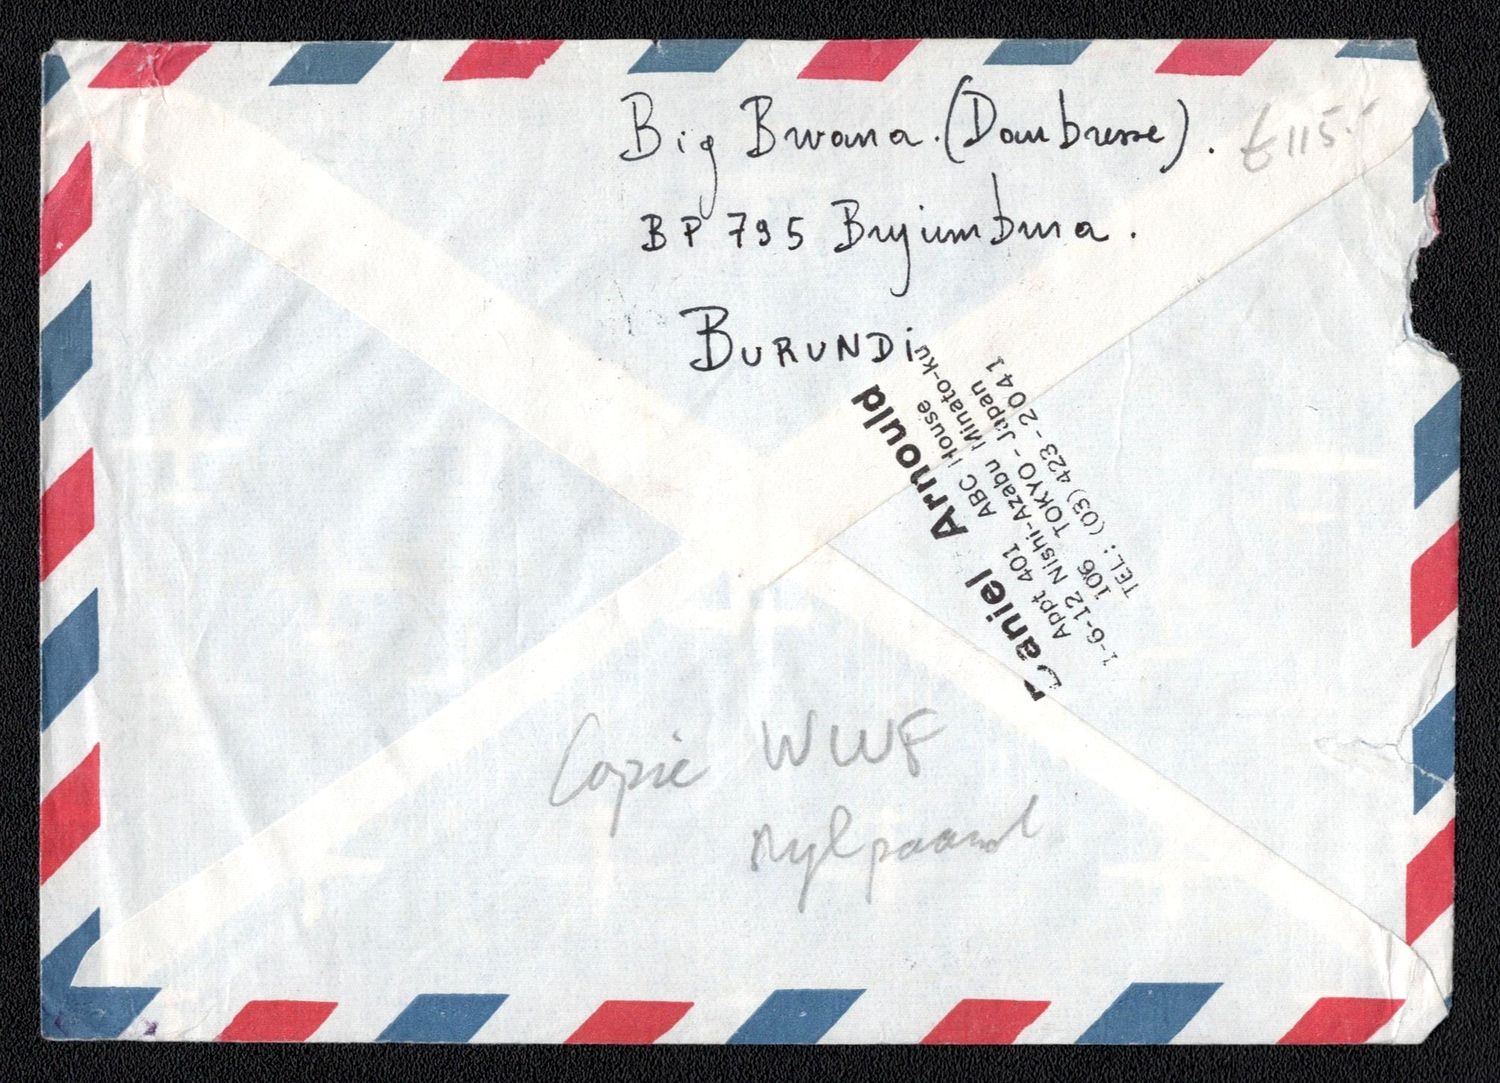 Big Bwana. (Daubresse).
£115.-
BP 795 Bujumbura.
BURUNDi
Daniel Arnould
Appt 401 ABC House
1-6-12 Nishi-Azabu Minato-ku
106 TOKYO - Japan
TEL: (03) 423 - 2041
Copie WWF
nylpaard